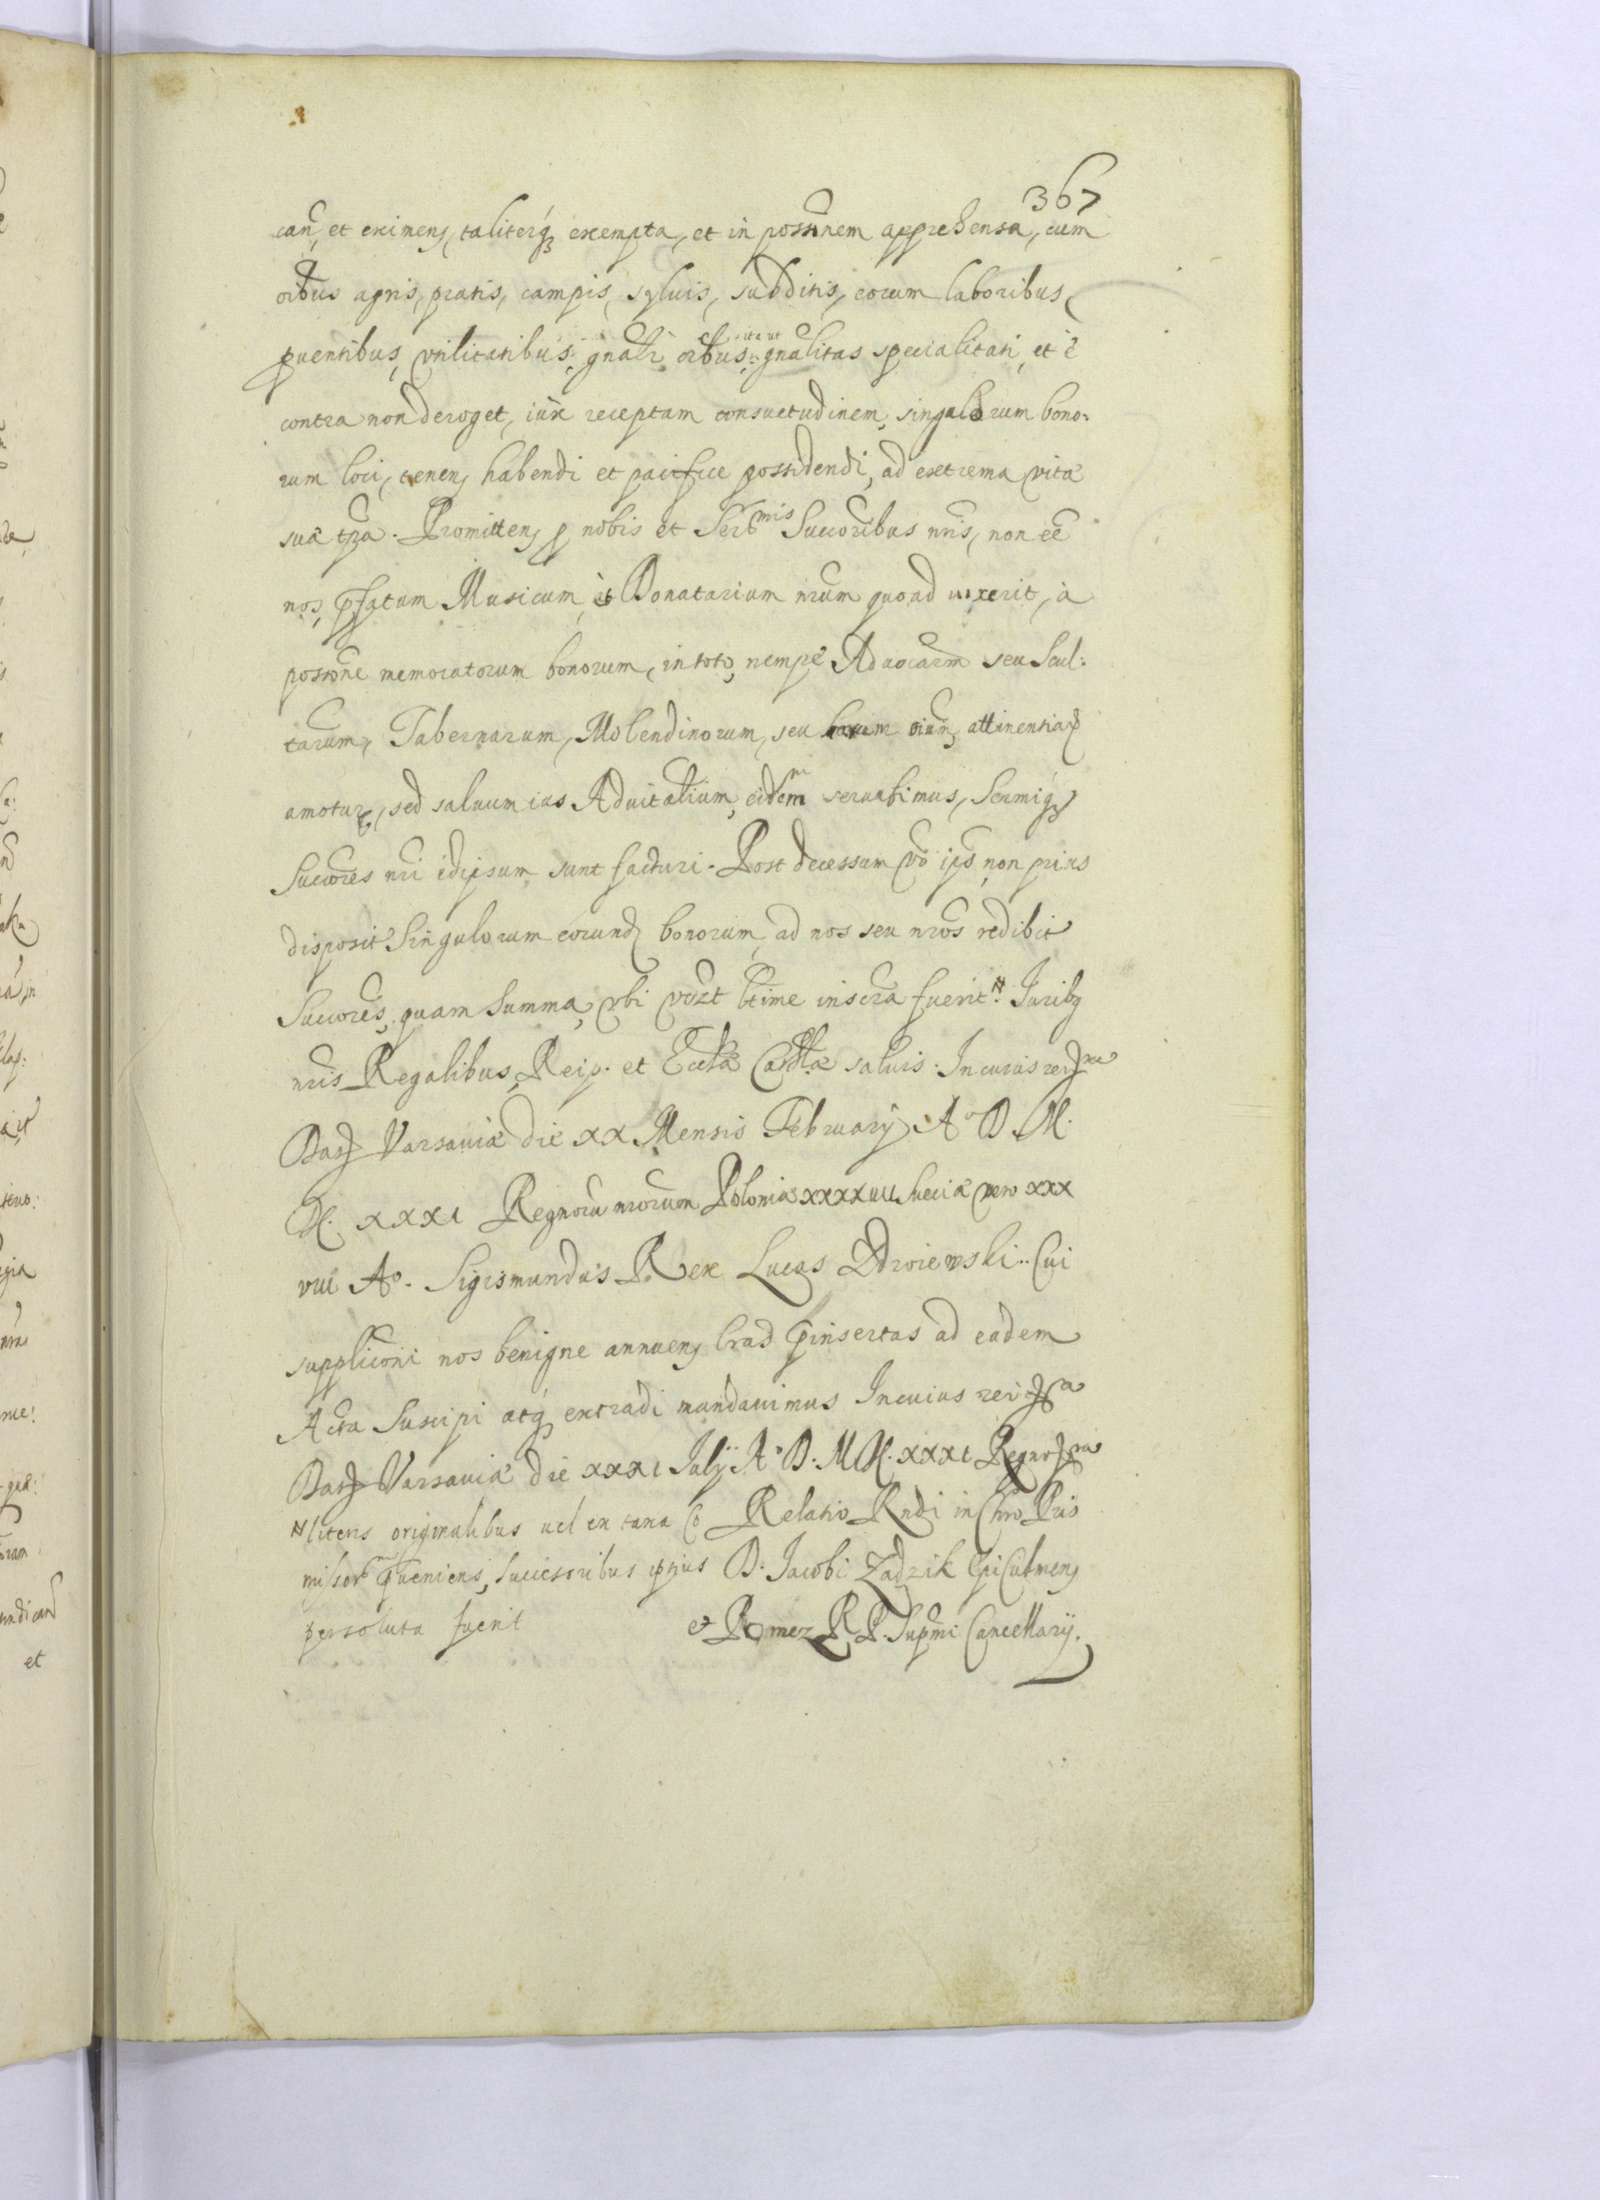 367
can̄, et eximen, taliterq; exempta, et in possnem apprehensa, cum
oibus agris, pratis, campis, syluis, subditis, eorum laboribus,
puentibus, vtilitatibus, gnalr oibus, ita ut gnalitas specialitati, et è
contra non deroget, iux receptam consuetudinem, singulorum bono:
rum loci, tenen, habendi et pacifice possidendi, ad extrema vitæ
suæ tpa. Promitten, p nobis et Sermis Succoribus nris, non eē
nos, pfatum Musicum, et Donatarium nrum quoad uixerit, à
possone memoratorum bonorum, in toto, nempè Aduocarm seu Scul:
tarum, Tabernarum, Molendinorum, seu oium, attinentiar
amoturos, sed saluum ius Aduitalium, eidem seruabimus, Sermiq;
Succores nri idipsum sunt facturi. Post decessum vō ips, non prius
disposit Singulorum eorund bonorum, ad nos seu nros redibit
Succores, quam Summa, vbi ltime inscra fuerit # Iurib;
nris Regalibus, Reip. et Ecclæ Cathlæ saluis. In cuius rei
Dat Varsauiæ die XX Mensis February A° D. M.
DC. XXXI Regnorū nrorum Poloniæ XXXXIIII Sueciæ vero XXX
VIII A°. Sigismundus Rex Lucas Zdroiewski. Cui
suppliconi nos benigne annuen, lras pinsertas ad eadem
Acta Suscipi atq; extradi mandauimus In cuius rei
Dat Varsauiæ die XXXI Iulÿ A° D: M DC. XXXI Regnor
# literis originalibus uel ex tana Relatio Rndi in Chro Pris
pueniens, Successoribus ipsius D. Iacobi Zadzik Epi Culmen,
persoluta fuerit et Pomez R P. Supmi Cancellarÿ.